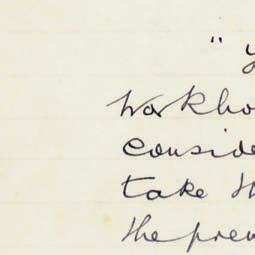 " Y
Workho
conside
take th
the prem